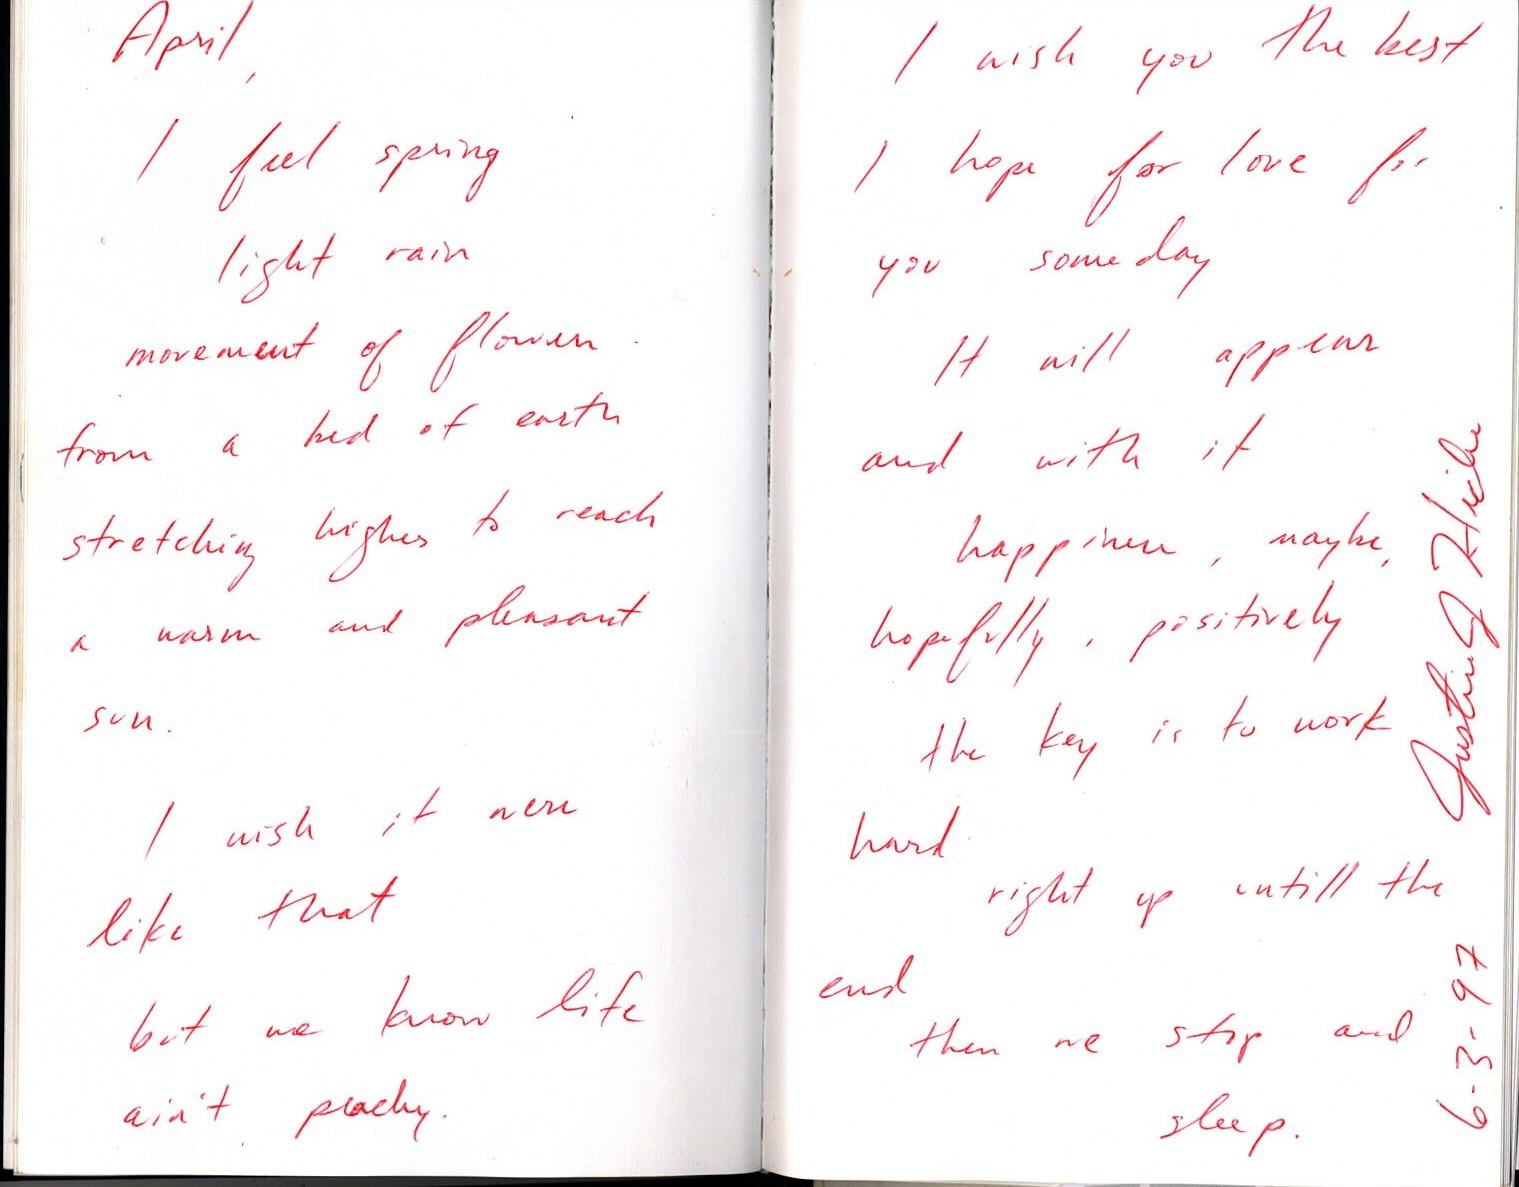 April,
I feel spring
light rain
movement of flowers
from a bed of earth
stretching higher to reach
a warm and pleasant
sun.
I wish it were
like that
but we know life
ain't peachy.
I wish you the best
I hope for love for
you someday
It will appear
and with it
happiness, maybe,
hopefully, positively
the key is to work
hard
right up untill the
end
then we stop and
sleep.
Justin J
6-3-97